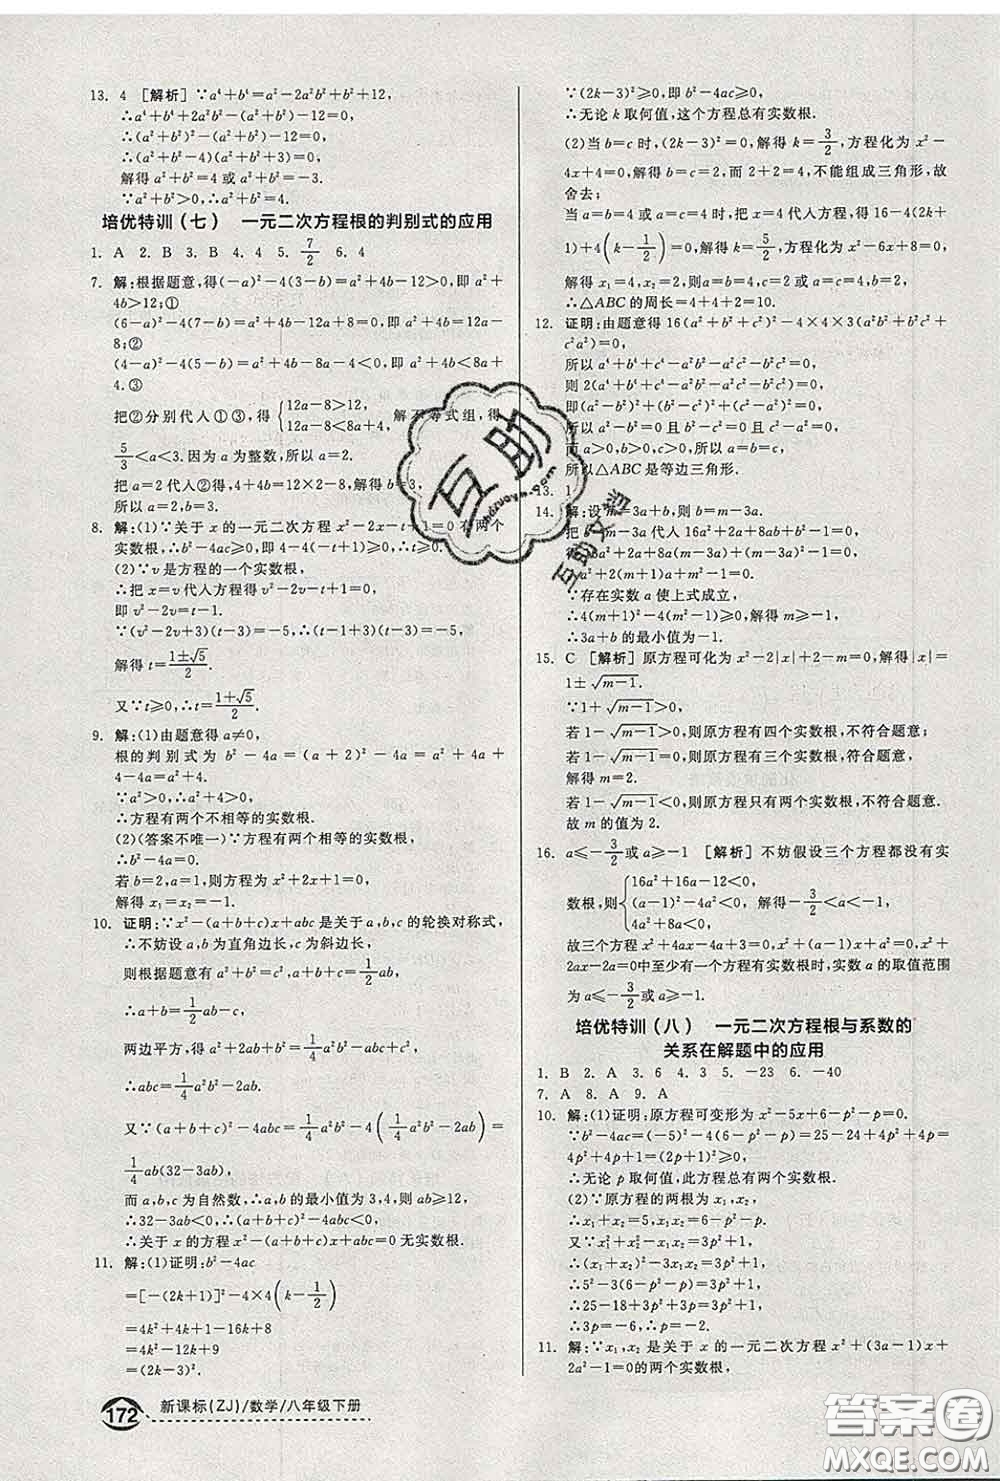 13. 4 [解析] ∵a⁴+b⁴=a²-2a²b²+b²+12,
∴a⁴+b⁴+2a²b²-a²-b²-12=0,
∴(a²+b²)²-(a²+b²)-12=0,
∴(a²+b²-4)(a²+b²+3)=0,
解得 a²+b²=4 或 a²+b²=-3.
∵a²+b²>0,∴a²+b²=4.
培优特训(七) 一元二次方程根的判别式的应用
1. A 2. B 3. B 4. 4 5. 7/2 6. 4
7. 解:根据题意,得(-a)²-4(3-b)=a²+4b-12>0,即 a²+
4b>12;①
(6-a)²-4(7-b)=a²+4b-12a+8=0,即 a²+4b=12a-
8;②
(4-a)²-4(5-b)=a²+4b-8a-4<0,即 a²+4b<8a+
4.③
把②分别代人①③,得{12a-8>12, 12a-8<8a+4, 解不等式组,得
5/3<a<3.因为 a 为整数,所以 a=2.
把 a=2 代人②得,4+4b=24-8,解得 b=3,
所以 a=2,b=3.
8. 解:(1)∵关于 x 的一元二次方程 x²-2x-t+1=0 有两个
实数根,∴4-4(-t+1)≥0,解得 t≥0.
(2)∵v 是方程的一个实数根,
∴把 x=v 代人方程得 v²-2v-t+1=0,
即 v²-2v=t-1.
∵(v²-2v+3)(t-3)=-5,∴(t-1+3)(t-3)=-5,
解得 t=(1±√5)/2.
又∵t≥0,∴t=(1+√5)/2.
9. 解:(1)由题意得 a≠0,
根的判别式为 b²-4a=(a+2)²-4a=a²+4a+
4-4a=a²+4.
∵a²>0,∴a²+4>0,
∴方程有两个不相等的实数根.
(2)(答案不唯一)∵方程有两个相等的实数根,
∴b²-4a=0.
若 b=2,a=1,则方程为 x²+2x+1=0,
解得 x₁=x₂=-1.
10. 证明:∵x²-(a+b+c)x+abc 是关于 a,b,c 的轮换对称式,
∴不妨设 a,b 为直角边长,c 为斜边长,
则根据题意有 a²+b²=c²,a+b+c=1/2ab,
∴a+b=1/2ab-c,
两边平方,得 a²+b²+2ab=1/4a²b²-abc+c²,
∴abc=1/4a²b²-2ab.
又∵(a+b+c)²-4abc=1/4a²b²-4(1/4a²b²-2ab)=
1/4ab(32-3ab),
而 a,b,c 为自然数,∴a,b 的最小值为 3,4,则 ab≥12,
∴32-3ab<0,∴(a+b+c)²-4abc<0,
∴关于 x 的方程 x²-(a+b+c)x+abc=0 无实数根.
11. 解:(1)证明:b²-4ac
=[-(2k+1)]²-4×4(k-1/2)
=4k²+4k+1-16k+8
=4k²-12k+9
=(2k-3)².
172 新课标(ZJ)/数学/八年级下册
∵(2k-3)²≥0,即 b²-4ac≥0,
∴无论 k 取何值,这个方程总有实数根.
(2)当 b=c 时,(2k-3)²=0,解得 k=3/2,方程化为 x²-
4x+4=0,解得 b=c=2,而 b+c=a,不能组成三角形,故
舍去;
当 a=b 或 a=c 时,把 x=4 代人方程,得 16-4(2k
+1)+4(k-1/2)=0,解得 k=5/2,方程化为 x²-6x+8=0,
解得 x₁=4,x₂=2,则 a=b=4,c=2 或 a=c=4,b=2,
∴△ABC 的周长=4+4+2=10.
12. 证明:由题意得 16(a²+b²+c²)²-4×4×3(a²b²+b²c²+
c²a²)=0,
所以 a⁴+b⁴+c⁴-a²b²-a²c²-b²c²=0,
则 2(a⁴+b⁴+c⁴-a²b²-a²c²-b²c²)=0,
即(a²-b²)²+(b²-c²)²+(c²-a²)²=0,
所以 a²-b²=0 且 b²-c²=0 且 c²-a²=0.
而 a>0,b>0,c>0,所以 a=b=c,
所以△ABC 是等边三角形.
13. 1
14. 解:设 m=3a+b,则 b=m-3a.
把 b=m-3a 代人 10a²+2a+8ab+b²=0,得
10a²+2a+8a(m-3a)+(m-3a)²=0,
∴a²+2(m+1)a+m²=0.
∵存在实数 a 使上式成立,
∴4(m+1)²-4(m²-1)≥0,解得 m≥-1.
∴3a+b 的最小值为-1.
15. C [解析] 原方程可化为 x²-2|x|+2-m=0,解得|x|=
1±√(m-1).
∵1+√(m-1)>0,
若 1-√(m-1)>0,则原方程有四个实数根,不符合题意;
若 1-√(m-1)=0,则原方程有三个实数根,符合题意,
解得 m=2.
若 1-√(m-1)<0,则原方程只有两个实数根,不符合题意.
故 m 的值为 2.
16. a≤-3/2或 a≥-1 [解析] 不妨假设三个方程都没有实
数根,则有{16a²+16a-12<0, (a-1)²-4a²<0, 4a²+8a<0, 解得-3/2<a<-1.
故三个方程 x²+4ax-4a+3=0,x²+(a-1)x+a²=0,x²+
2ax-2a=0中至少有一个方程有实数根时,实数 a 的取值范围
为 a≤-3/2或 a≥-1.
培优特训(八) 一元二次方程根与系数的
关系在解题中的应用
1. B 2. A 3. 6 4. 3 5. -23 6. -40
7. A 8. A 9. A
10. 解:(1)证明:原方程可变形为 x²-5x+6-p²-p=0.
∵b²-4ac=(-5)²-4(6-p²-p)=25-24+4p²+
4p=4p²+4p+1=(2p+1)²≥0,
∴无论 p 取何值,此方程总有两个实数根.
(2)∵原方程的两根为 x₁,x₂,
∴x₁+x₂=5,x₁x₂=6-p²-p.
又∵x₁²+x₂²-x₁x₂=3p²+1,
∴(x₁+x₂)²-3x₁x₂=3p²+1,
∴5²-3(6-p²-p)=3p²+1,
∴25-18+3p²+3p=3p²+1,
∴3p=-6,∴p=-2.
11. 解:∵x₁,x₂ 是关于 x 的一元二次方程 x²+(3a-1)x+
2a²-1=0的两个实数根,
互助
huzuoye.com
互助文档
答案圈
MXQE.COM